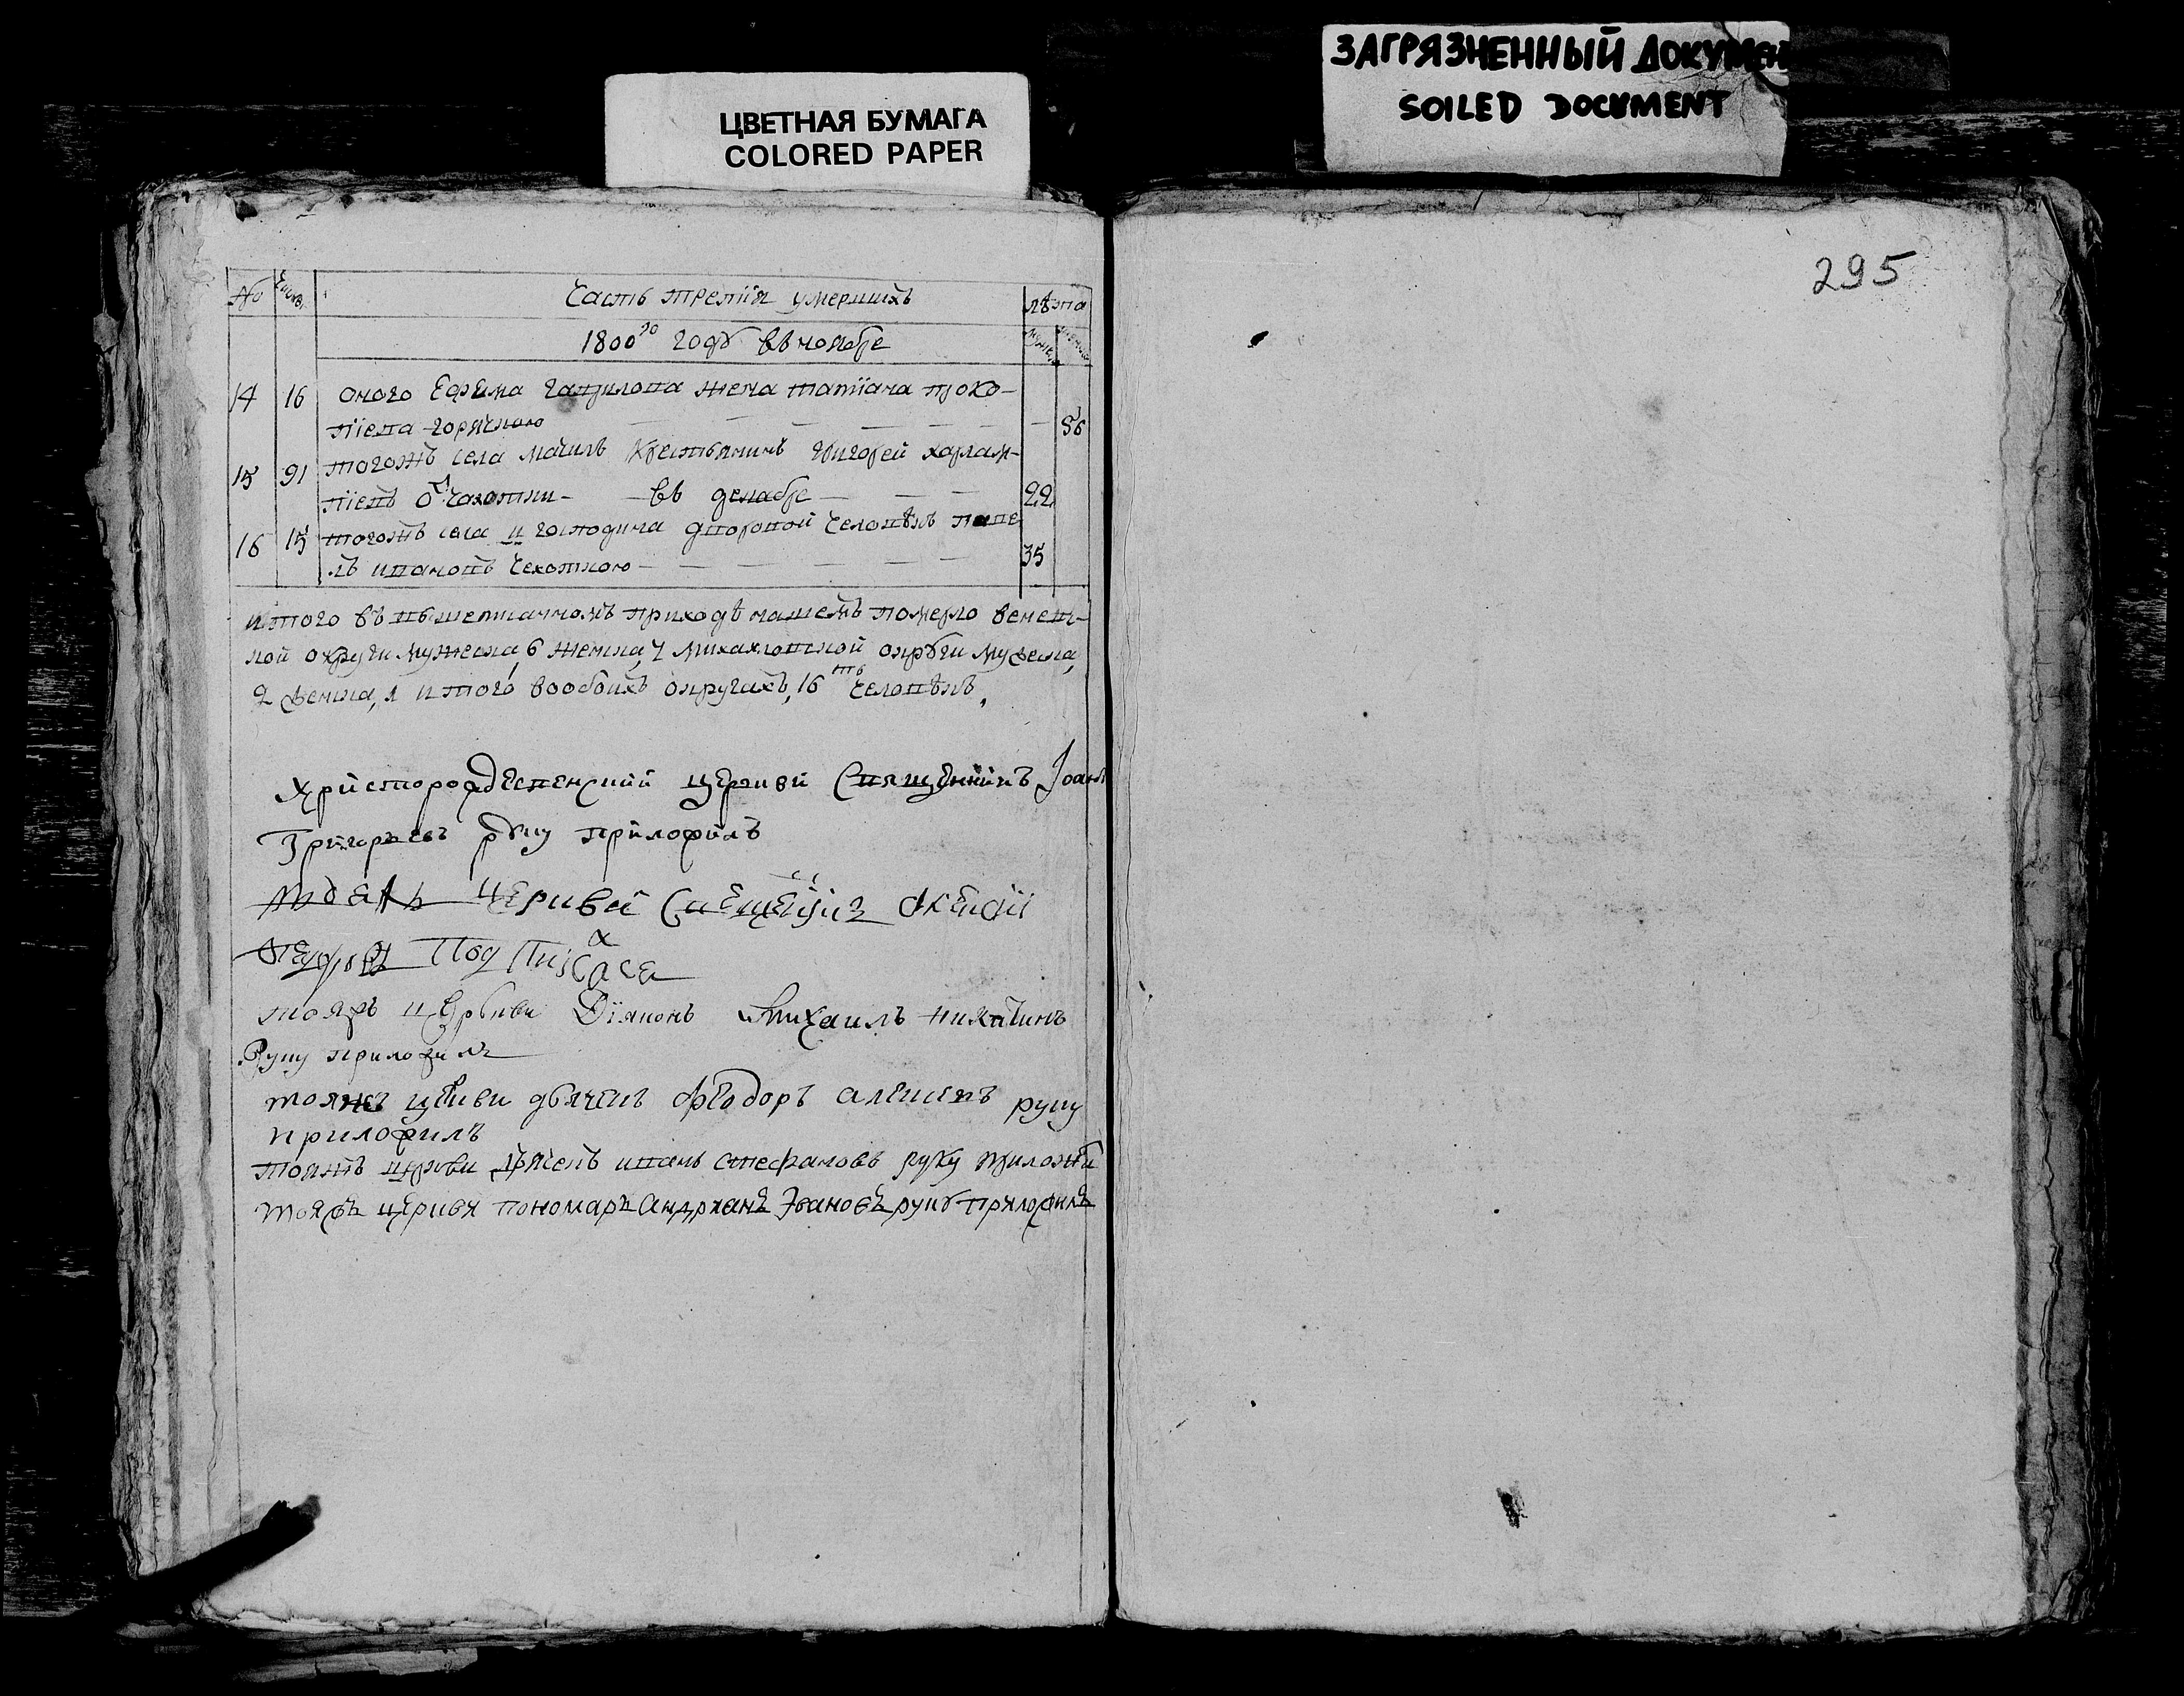 ЗАГРЯЗНЕННЫЙ ДОКУМЕН
SOILED DOCUMENT
ЦВЕТНАЯ БУМАГА
COLORED PAPER
295
№ Часть третія умершихъ лѣта
1800го году въ ноябре
14 16 оного Ефима Гаврилова жена татіана проко-
піева горячкою 56
15 21 тогожъ села крестьянинъ григорей харлам-
піевъ чахотки въ декабре 22
16 15 тогожъ села и господина дворовой человѣкъ паве
лъ ивановъ чехоткою 35
итого въ вышеписанномъ приходѣ нашемъ померло
ной округи мужеска, 6 женска, 7 михаиловской округи мужеска,
2 женска, 1 итого вообоихъ округахъ, 16ть человѣкъ,
христорождественской церкви священникъ Іоаннъ
Григорьевъ руку приложилъ
церкви священникъ
подписался
тояжъ церкви Діяконъ Михаилъ никитинъ
Руку приложилъ
тояжъ церкви дьячекъ федоръ алексеевъ руку
приложилъ
тояжъ церкви дьячекъ иванъ стефановъ руку приложи
тояжъ церкви пономарь Андреянъ Ивановъ руку приложилъ